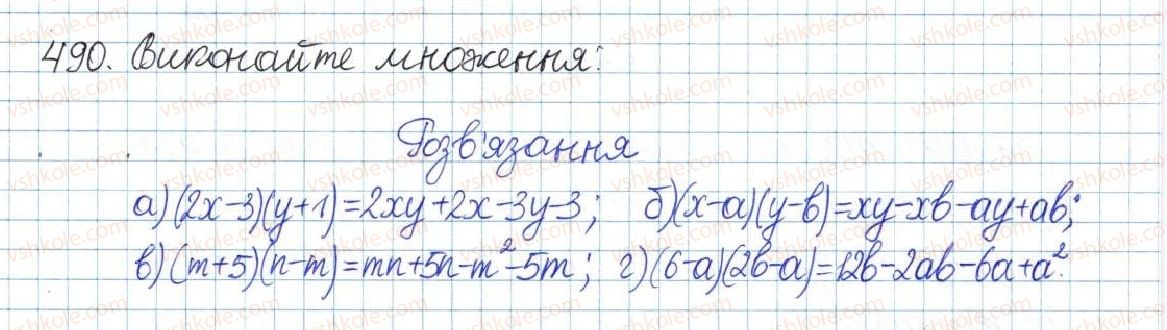 490. Виконайте множення:
Розв'язання
а) (2x-3)(y+1)=2xy+2x-3y-3; б) (x-a)(y-b)=xy-xb-ay+ab;
в) (m+5)(n-m)=mn+5n-m²-5m; г) (6-a)(2b-a)=12b-2ab-6a+a².